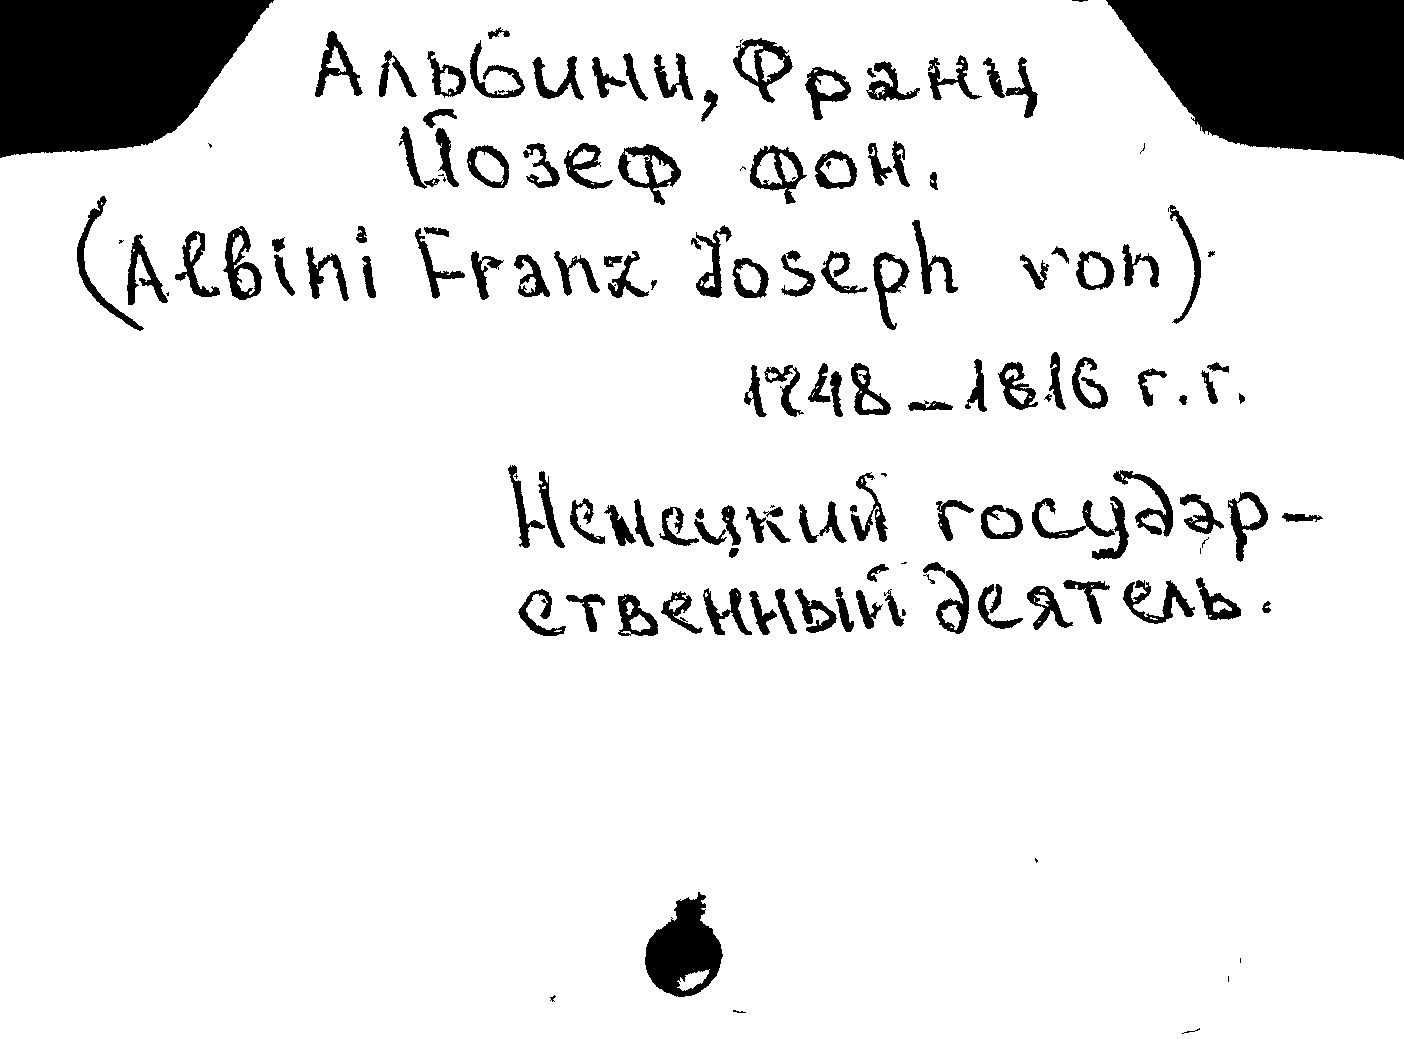 Альбини, Франц
Йозеф фон.
(Albini Franz Joseph von)
1748-1816 г.г.
Немецкий государ-
ственный деятель.